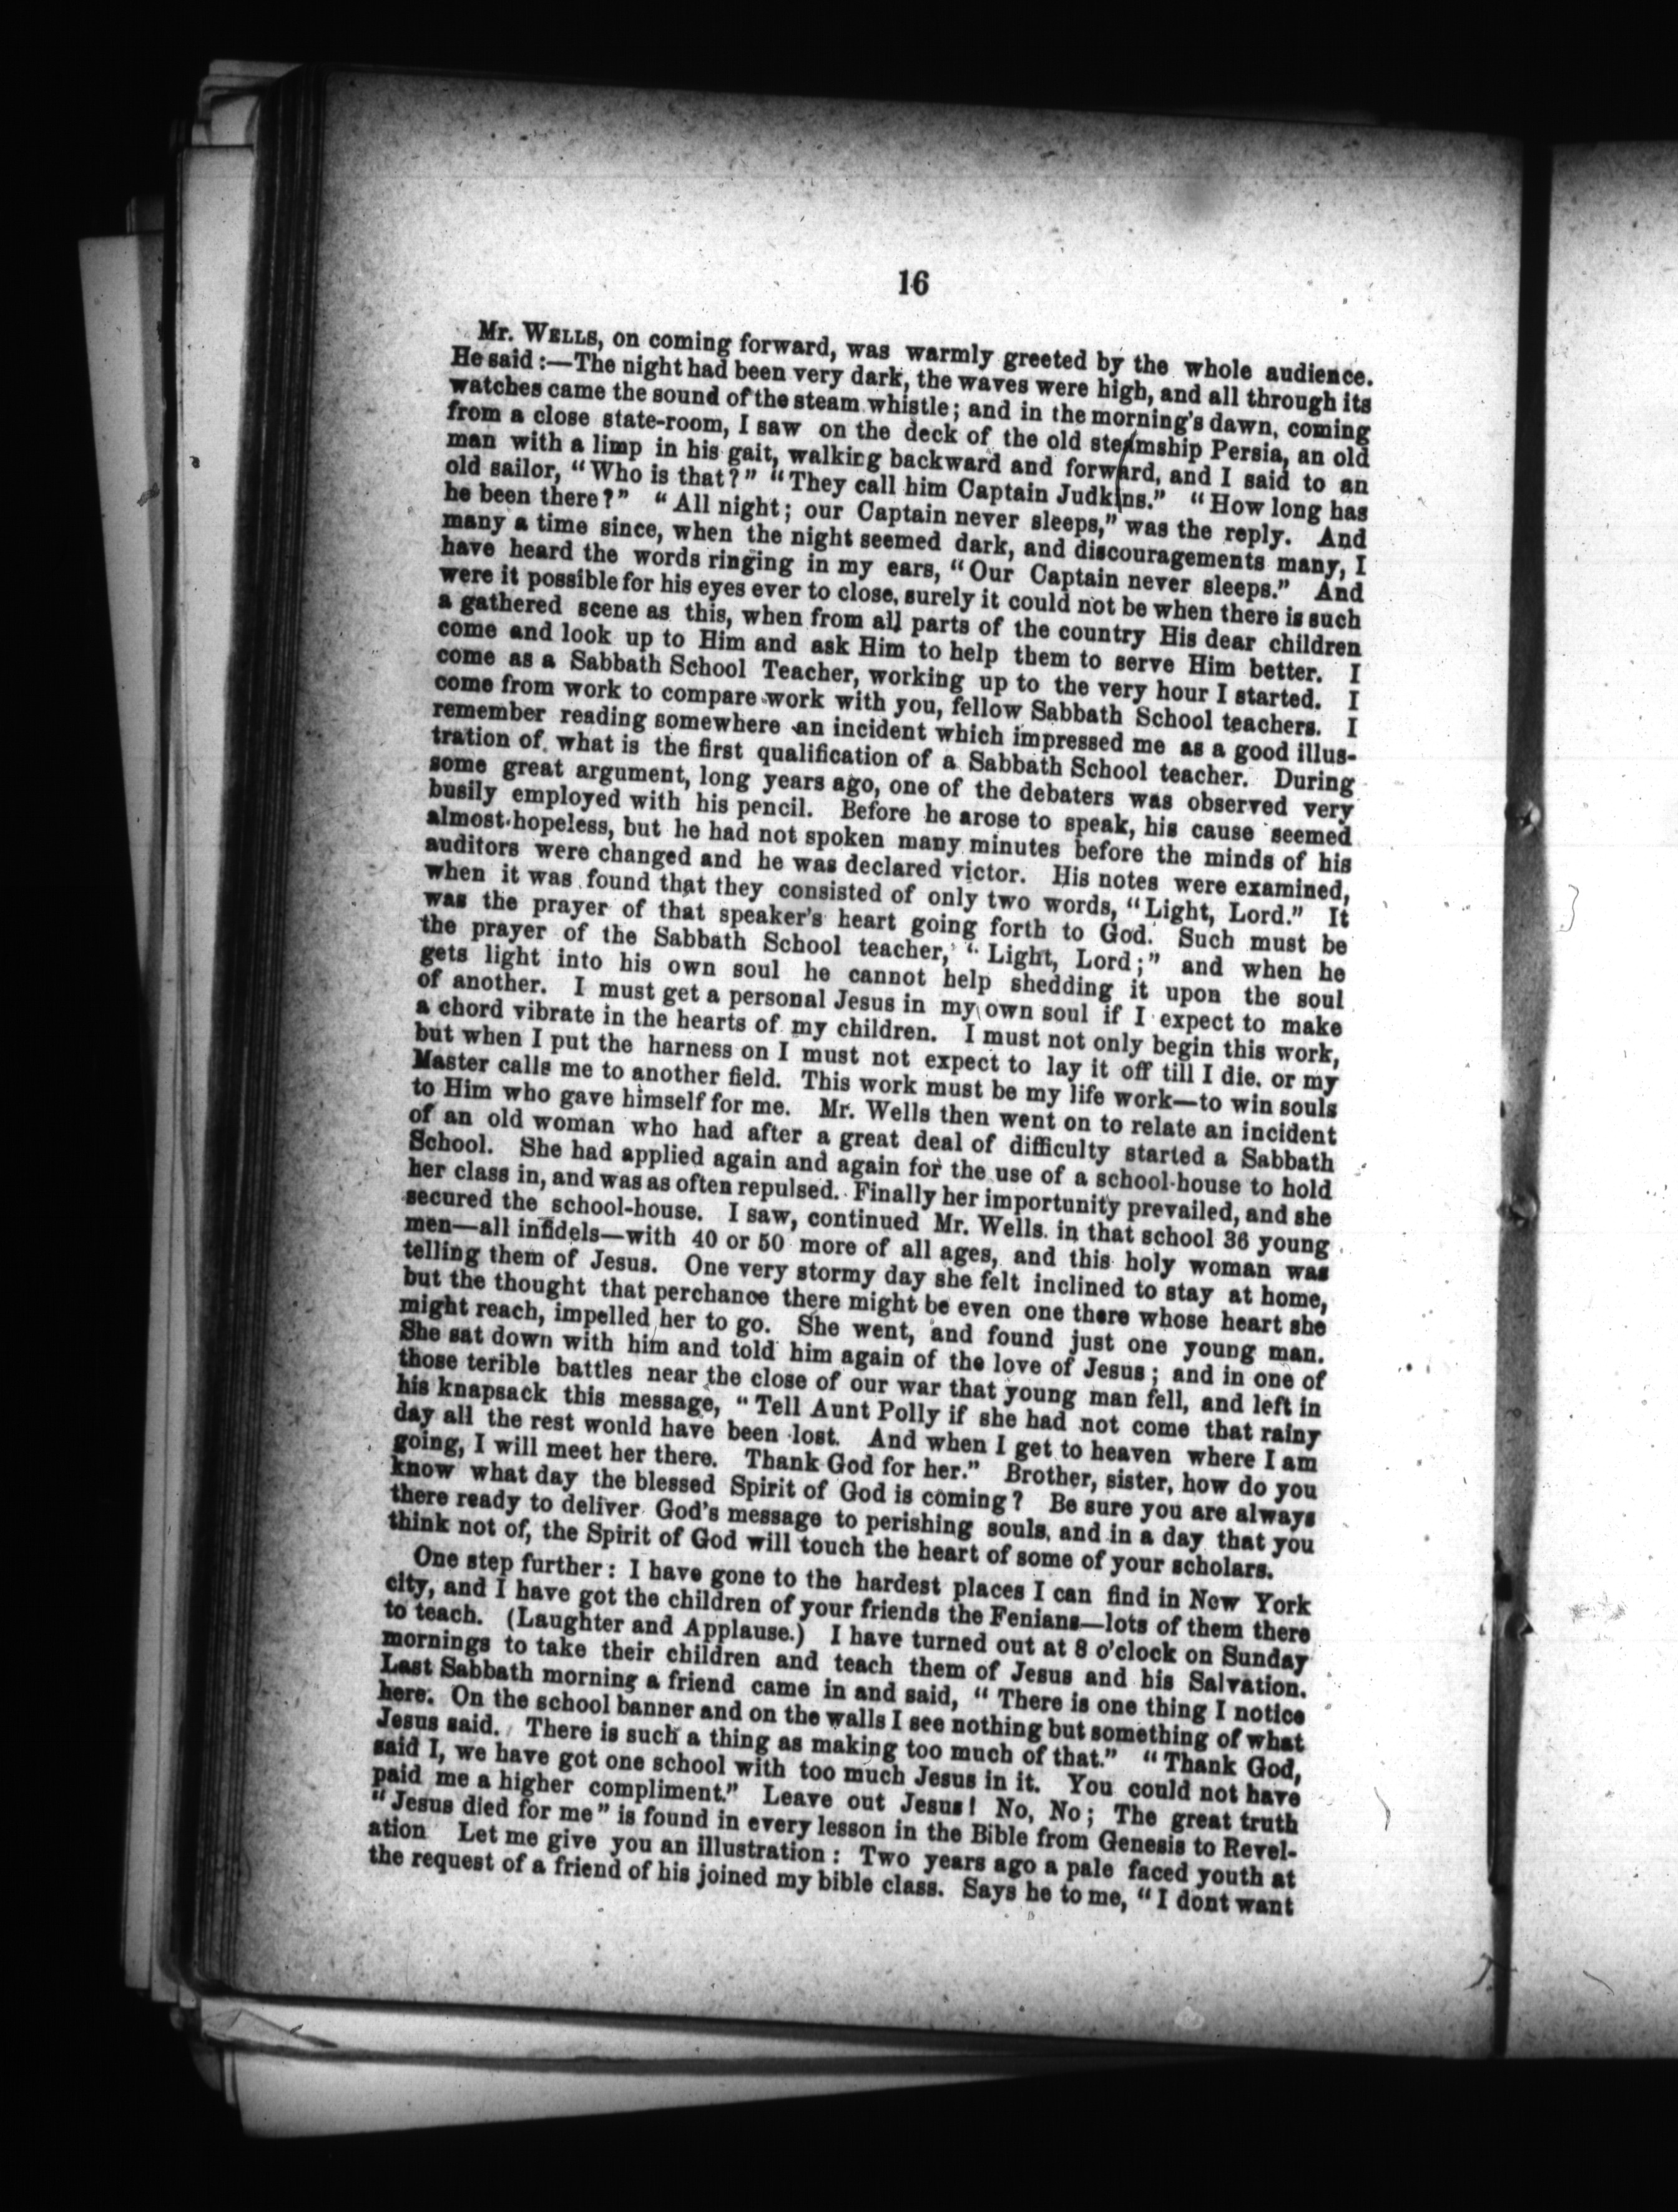 16
Mr. WELLS, on coming forward, was warmly greeted by the whole audience.
He said :—The night had been very dark, the waves were high, and all through its
watches came the sound of the steam whistle; and in the morning's dawn, coming
from a close state-room, I saw on the deck of the old steamship Persia, an old
man with a limp in his gait, walking backward and forward, and I said to an
old sailor, "Who is that?" "They call him Captain Judkins." "How long has
he been there?" "All night; our Captain never sleeps," was the reply. And
many a time since, when the night seemed dark, and discouragements many, I
have heard the words ringing in my ears, "Our Captain never sleeps." And
were it possible for his eyes ever to close, surely it could not be when there is such
a gathered scene as this, when from all parts of the country His dear children
come and look up to Him and ask Him to help them to serve Him better. I
come as a Sabbath School Teacher, working up to the very hour I started. I
come from work to compare work with you, fellow Sabbath School teachers. I
remember reading somewhere an incident which impressed me as a good illus-
tration of what is the first qualification of a Sabbath School teacher. During
some great argument, long years ago, one of the debaters was observed very
busily employed with his pencil. Before he arose to speak, his cause seemed
almost hopeless, but he had not spoken many minutes before the minds of his
auditors were changed and he was declared victor. His notes were examined,
when it was found that they consisted of only two words, "Light, Lord." It
was the prayer of that speaker's heart going forth to God. Such must be
the prayer of the Sabbath School teacher, "Light, Lord;" and when he
gets light into his own soul he cannot help shedding it upon the soul
of another. I must get a personal Jesus in my own soul if I expect to make
a chord vibrate in the hearts of my children. I must not only begin this work,
but when I put the harness on I must not expect to lay it off till I die, or my
Master calls me to another field. This work must be my life work—to win souls
to Him who gave himself for me. Mr. Wells then went on to relate an incident
of an old woman who had after a great deal of difficulty started a Sabbath
School. She had applied again and again for the use of a school-house to hold
her class in, and was as often repulsed. Finally her importunity prevailed, and she
secured the school-house. I saw, continued Mr. Wells, in that school 36 young
men—all infidels—with 40 or 50 more of all ages, and this holy woman was
telling them of Jesus. One very stormy day she felt inclined to stay at home,
but the thought that perchance there might be even one there whose heart she
might reach, impelled her to go. She went, and found just one young man.
She sat down with him and told him again of the love of Jesus; and in one of
those terible battles near the close of our war that young man fell, and left in
his knapsack this message, "Tell Aunt Polly if she had not come that rainy
day all the rest would have been lost. And when I get to heaven where I am
going, I will meet her there. Thank God for her." Brother, sister, how do you
know what day the blessed Spirit of God is coming? Be sure you are always
there ready to deliver God's message to perishing souls, and in a day that you
think not of, the Spirit of God will touch the heart of some of your scholars.
One step further: I have gone to the hardest places I can find in New York
city, and I have got the children of your friends the Fenians—lots of them there
to teach. (Laughter and Applause.) I have turned out at 8 o'clock on Sunday
mornings to take their children and teach them of Jesus and his Salvation.
Last Sabbath morning a friend came in and said, "There is one thing I notice
here. On the school banner and on the walls I see nothing but something of what
Jesus said. There is such a thing as making too much of that." "Thank God,
said I, we have got one school with too much Jesus in it. You could not have
paid me a higher compliment." Leave out Jesus! No, No; The great truth
"Jesus died for me" is found in every lesson in the Bible from Genesis to Revel-
ation Let me give you an illustration: Two years ago a pale faced youth at
the request of a friend of his joined my bible class. Says he to me, "I dont want